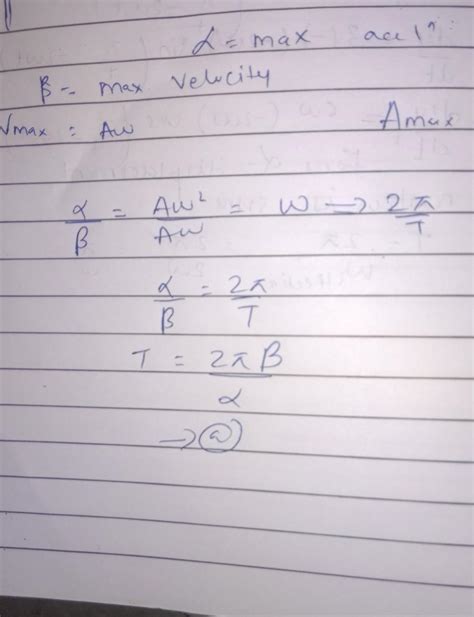 α = max accⁿ
β = max velocity
Vmax = Aω Amax
α/β = Aω²/Aω = ω → 2π/T
α/β = 2π/T
T = 2πβ/α
→ (a)